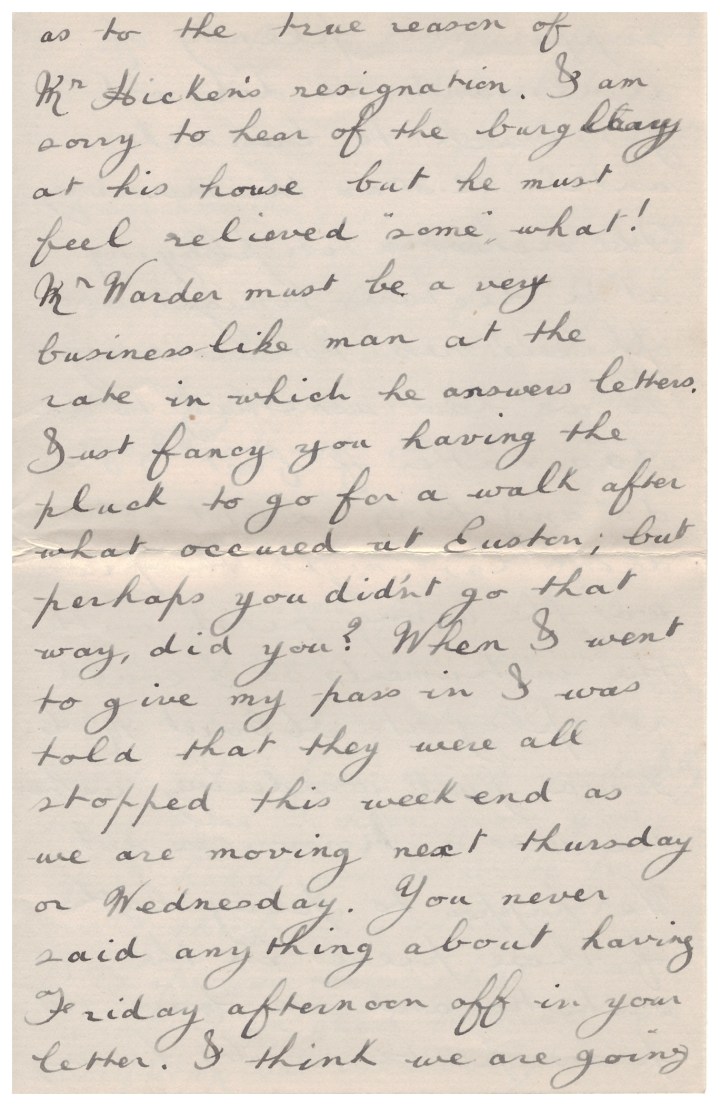 as to the true reason of
Mr Hicken's resignation. I am
sorry to hear of the burglary
at his house but he must
feel relieved "some", what!
Mr Warder must be a very
businesslike man at the
rate in which he answers letters.
Just fancy you having the
pluck to go for a walk after
what occured at Euston; but
perhaps you didn't go that
way, did you? When I went
to give my pass in I was
told that they were all
stopped this week end as
we are moving next thursday
or Wednesday. You never
said anything about having
Friday afternoon off in your
letter. I think we are going